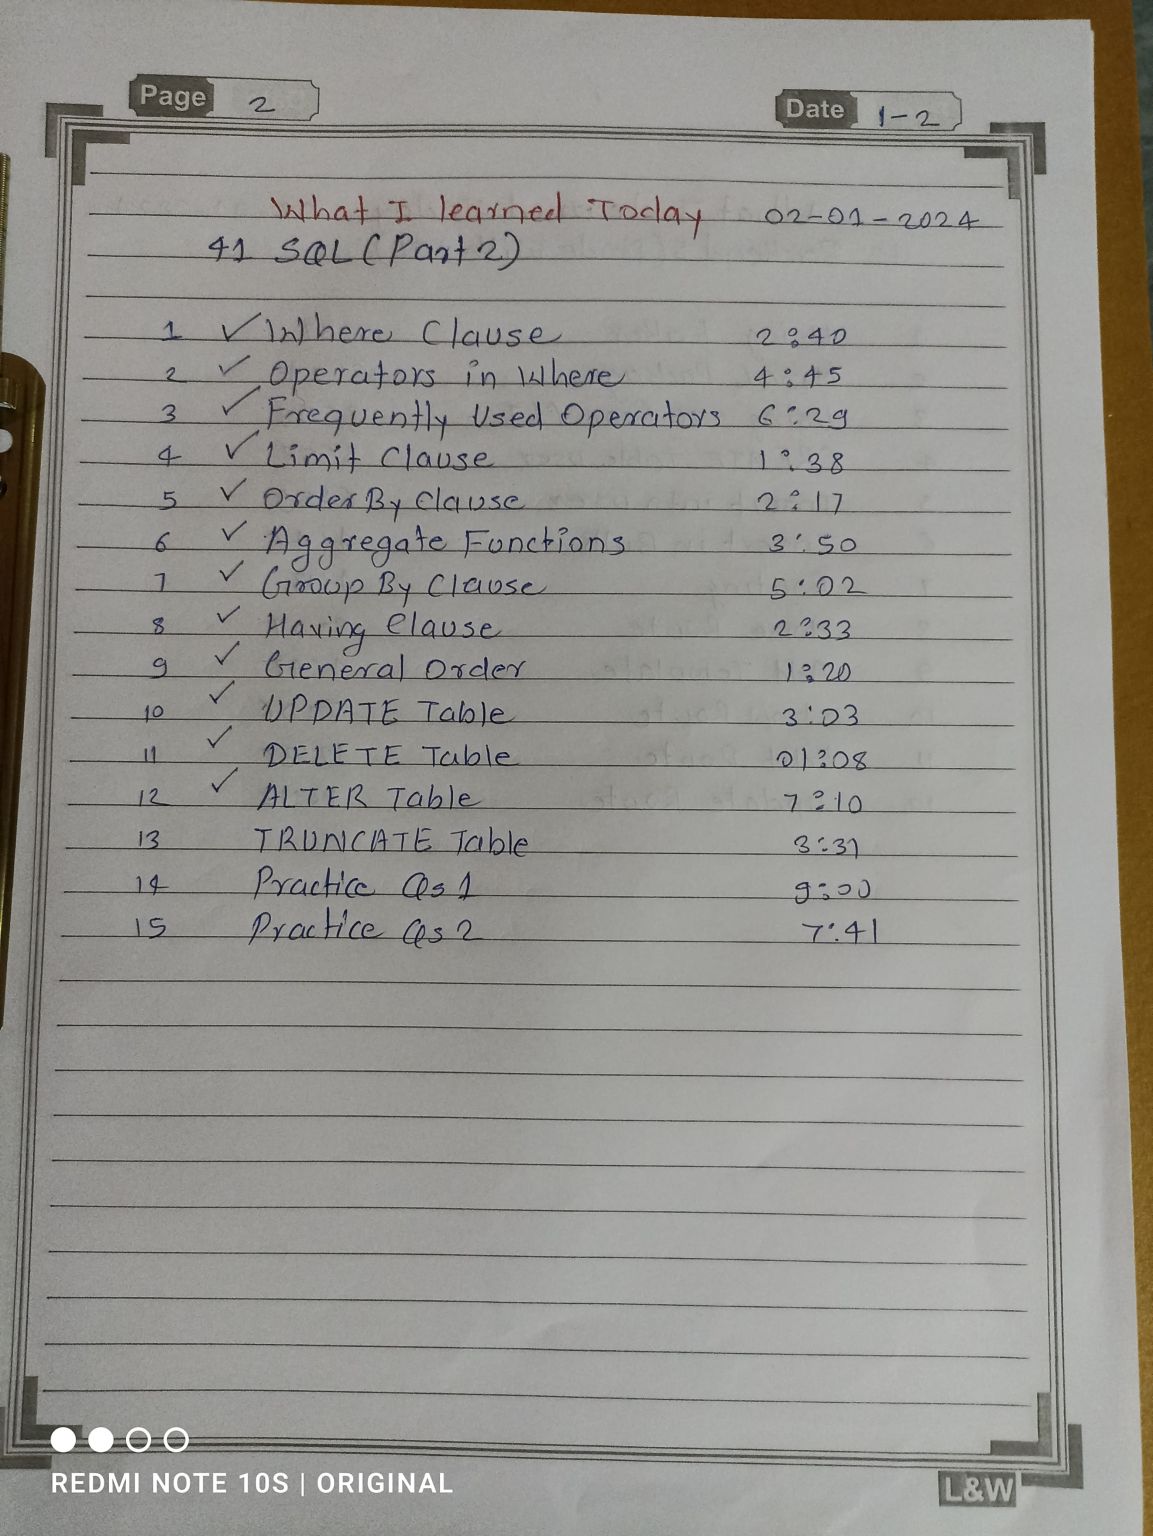 Page 2
Date 1-2
What I learned Today 02-01-2024
41 SQL (Part 2)
1 ✓ Where Clause 2:40
2 ✓ Operators in Where 4:45
3 ✓ Frequently Used Operators 6:29
4 ✓ Limit Clause 1:38
5 ✓ Order By Clause 2:17
6 ✓ Aggregate Functions 3:50
7 ✓ Group By Clause 5:02
8 ✓ Having Clause 2:33
9 ✓ General Order 1:20
10 ✓ UPDATE Table 3:03
11 ✓ DELETE Table 01:08
12 ✓ ALTER Table 7:10
13 TRUNCATE Table 3:31
14 Practice Qs 1 9:00
15 Practice Qs 2 7:41
REDMI NOTE 10S | ORIGINAL
L&W